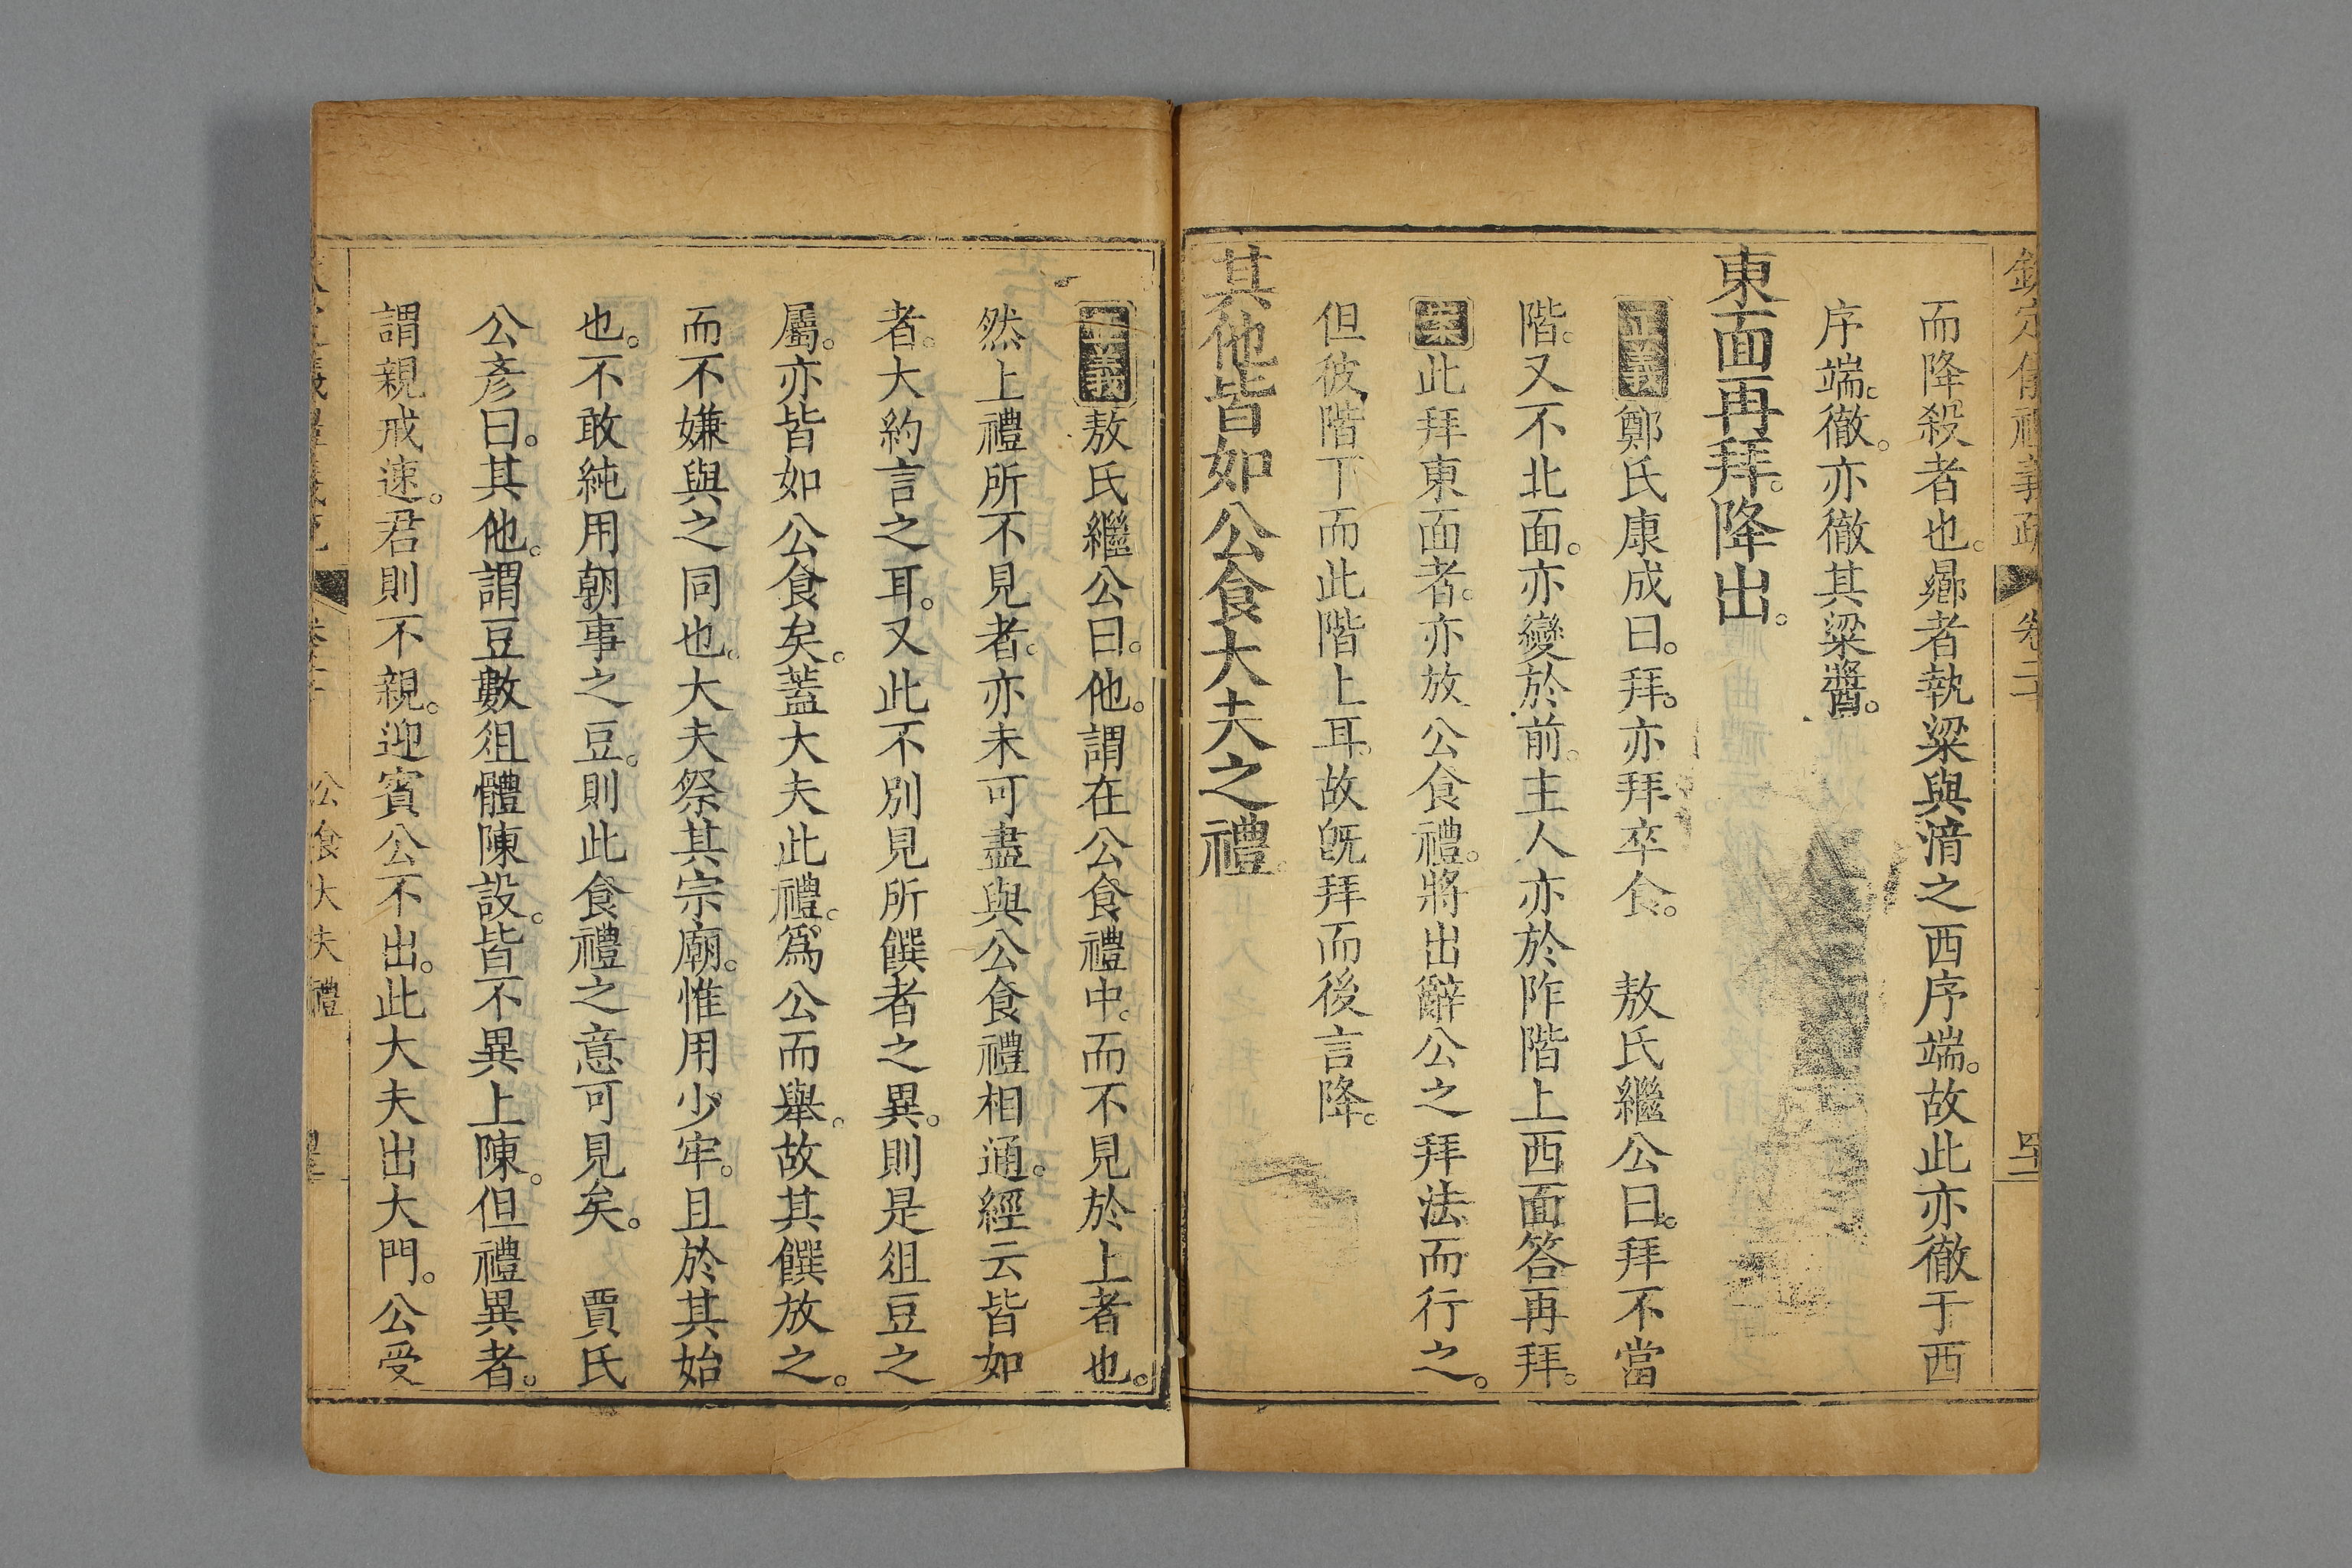 欽定儀禮義疏 卷二十
而降殺者也。曏者執粱與湆之西序端。故此亦徹于西
序端。徹。亦徹其粱醬。
東面再拜。降出。
正義鄭氏康成曰。拜。亦拜卒食。 敖氏繼公曰。拜不當
階。又不北面。亦變於前。主人亦於阼階上西面答再拜。
案此拜東面者。亦放公食禮。將出辭公之拜法而行之。
但彼階下而此階上耳。故旣拜而後言降。
其他皆如公食大夫之禮。
正義敖氏繼公曰。他。謂在公食禮中。而不見於上者也。
然上禮所不見者。亦未可盡與公食禮相通。經云皆如
者。大約言之耳。又此不別見所饌者之異。則是俎豆之
屬。亦皆如公食矣。蓋大夫此禮。爲公而舉。故其饌放之。
而不嫌與之同也。大夫祭其宗廟。惟用少牢。且於其始
也。不敢純用朝事之豆。則此食禮之意可見矣。 賈氏
公彥曰。其他。謂豆數俎體陳設。皆不異上陳。但禮異者。
謂親戒速。君則不親。迎賓公不出。此大夫出大門。公受
公食大夫禮